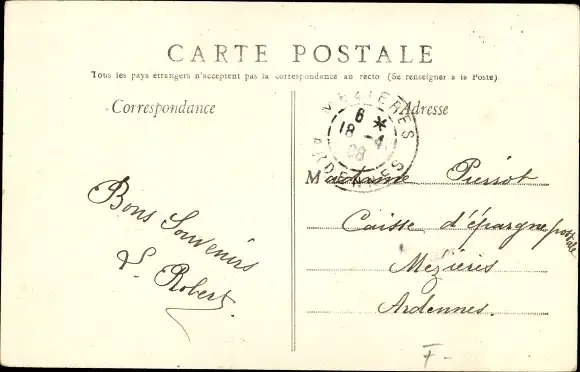 CARTE POSTALE
Tous les pays étrangers n'acceptent pas la correspondance au recto (Se renseigner à la Poste).
Correspondance
Adresse
MEZIERES
6 *
18 -4
08
ARDENNES
Bons Souvenirs
L. Robert.
Madame Pierrot
Caisse d'épargne postale
Mézières
Ardennes.
F-